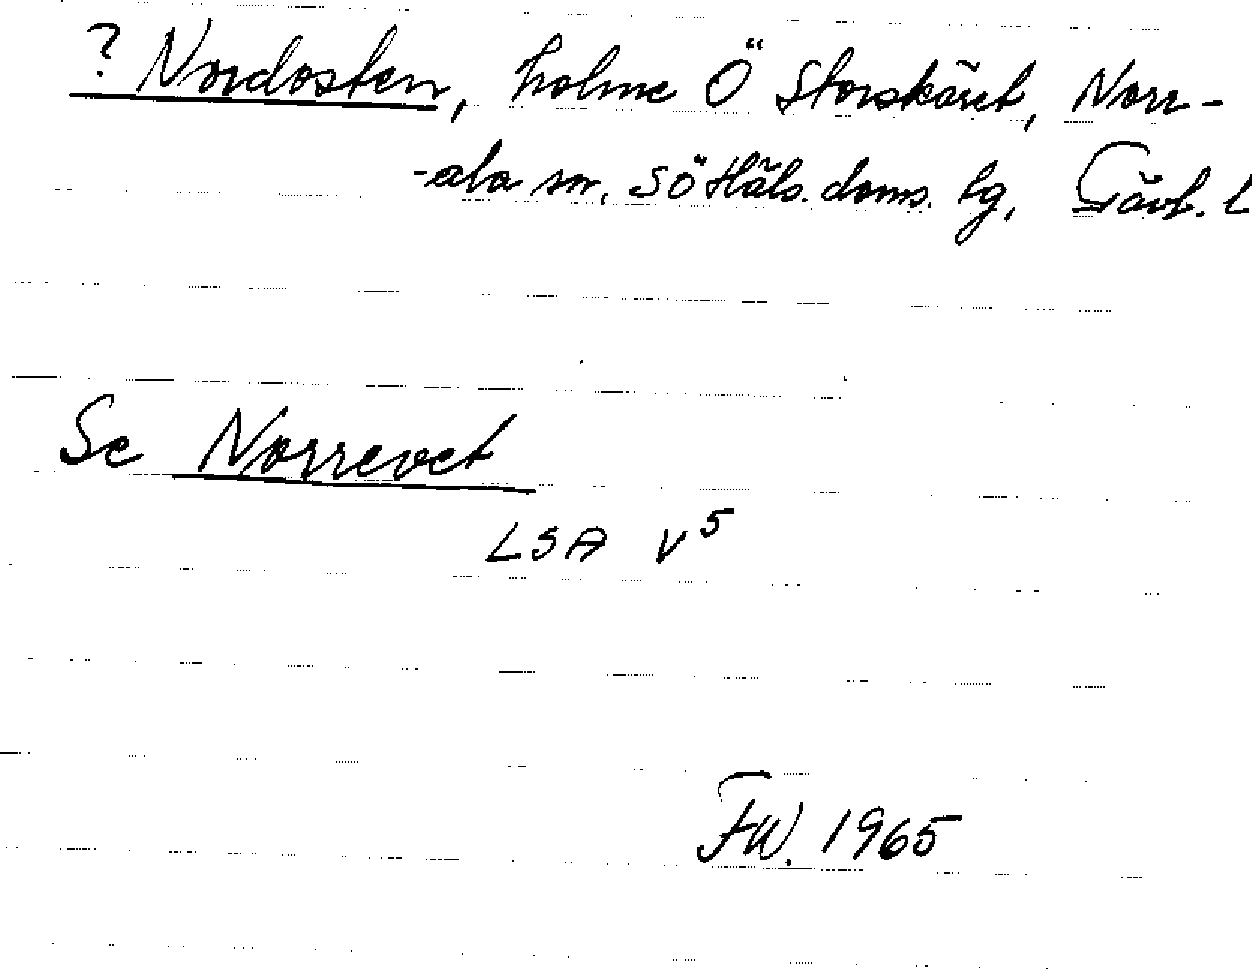 ? Nordosten, holme Ö Storskäret, Norr-
-ala sn, SÖ Häls. doms. lg, Gävl. L
Se Norrevet
LSA V5
FW. 1965